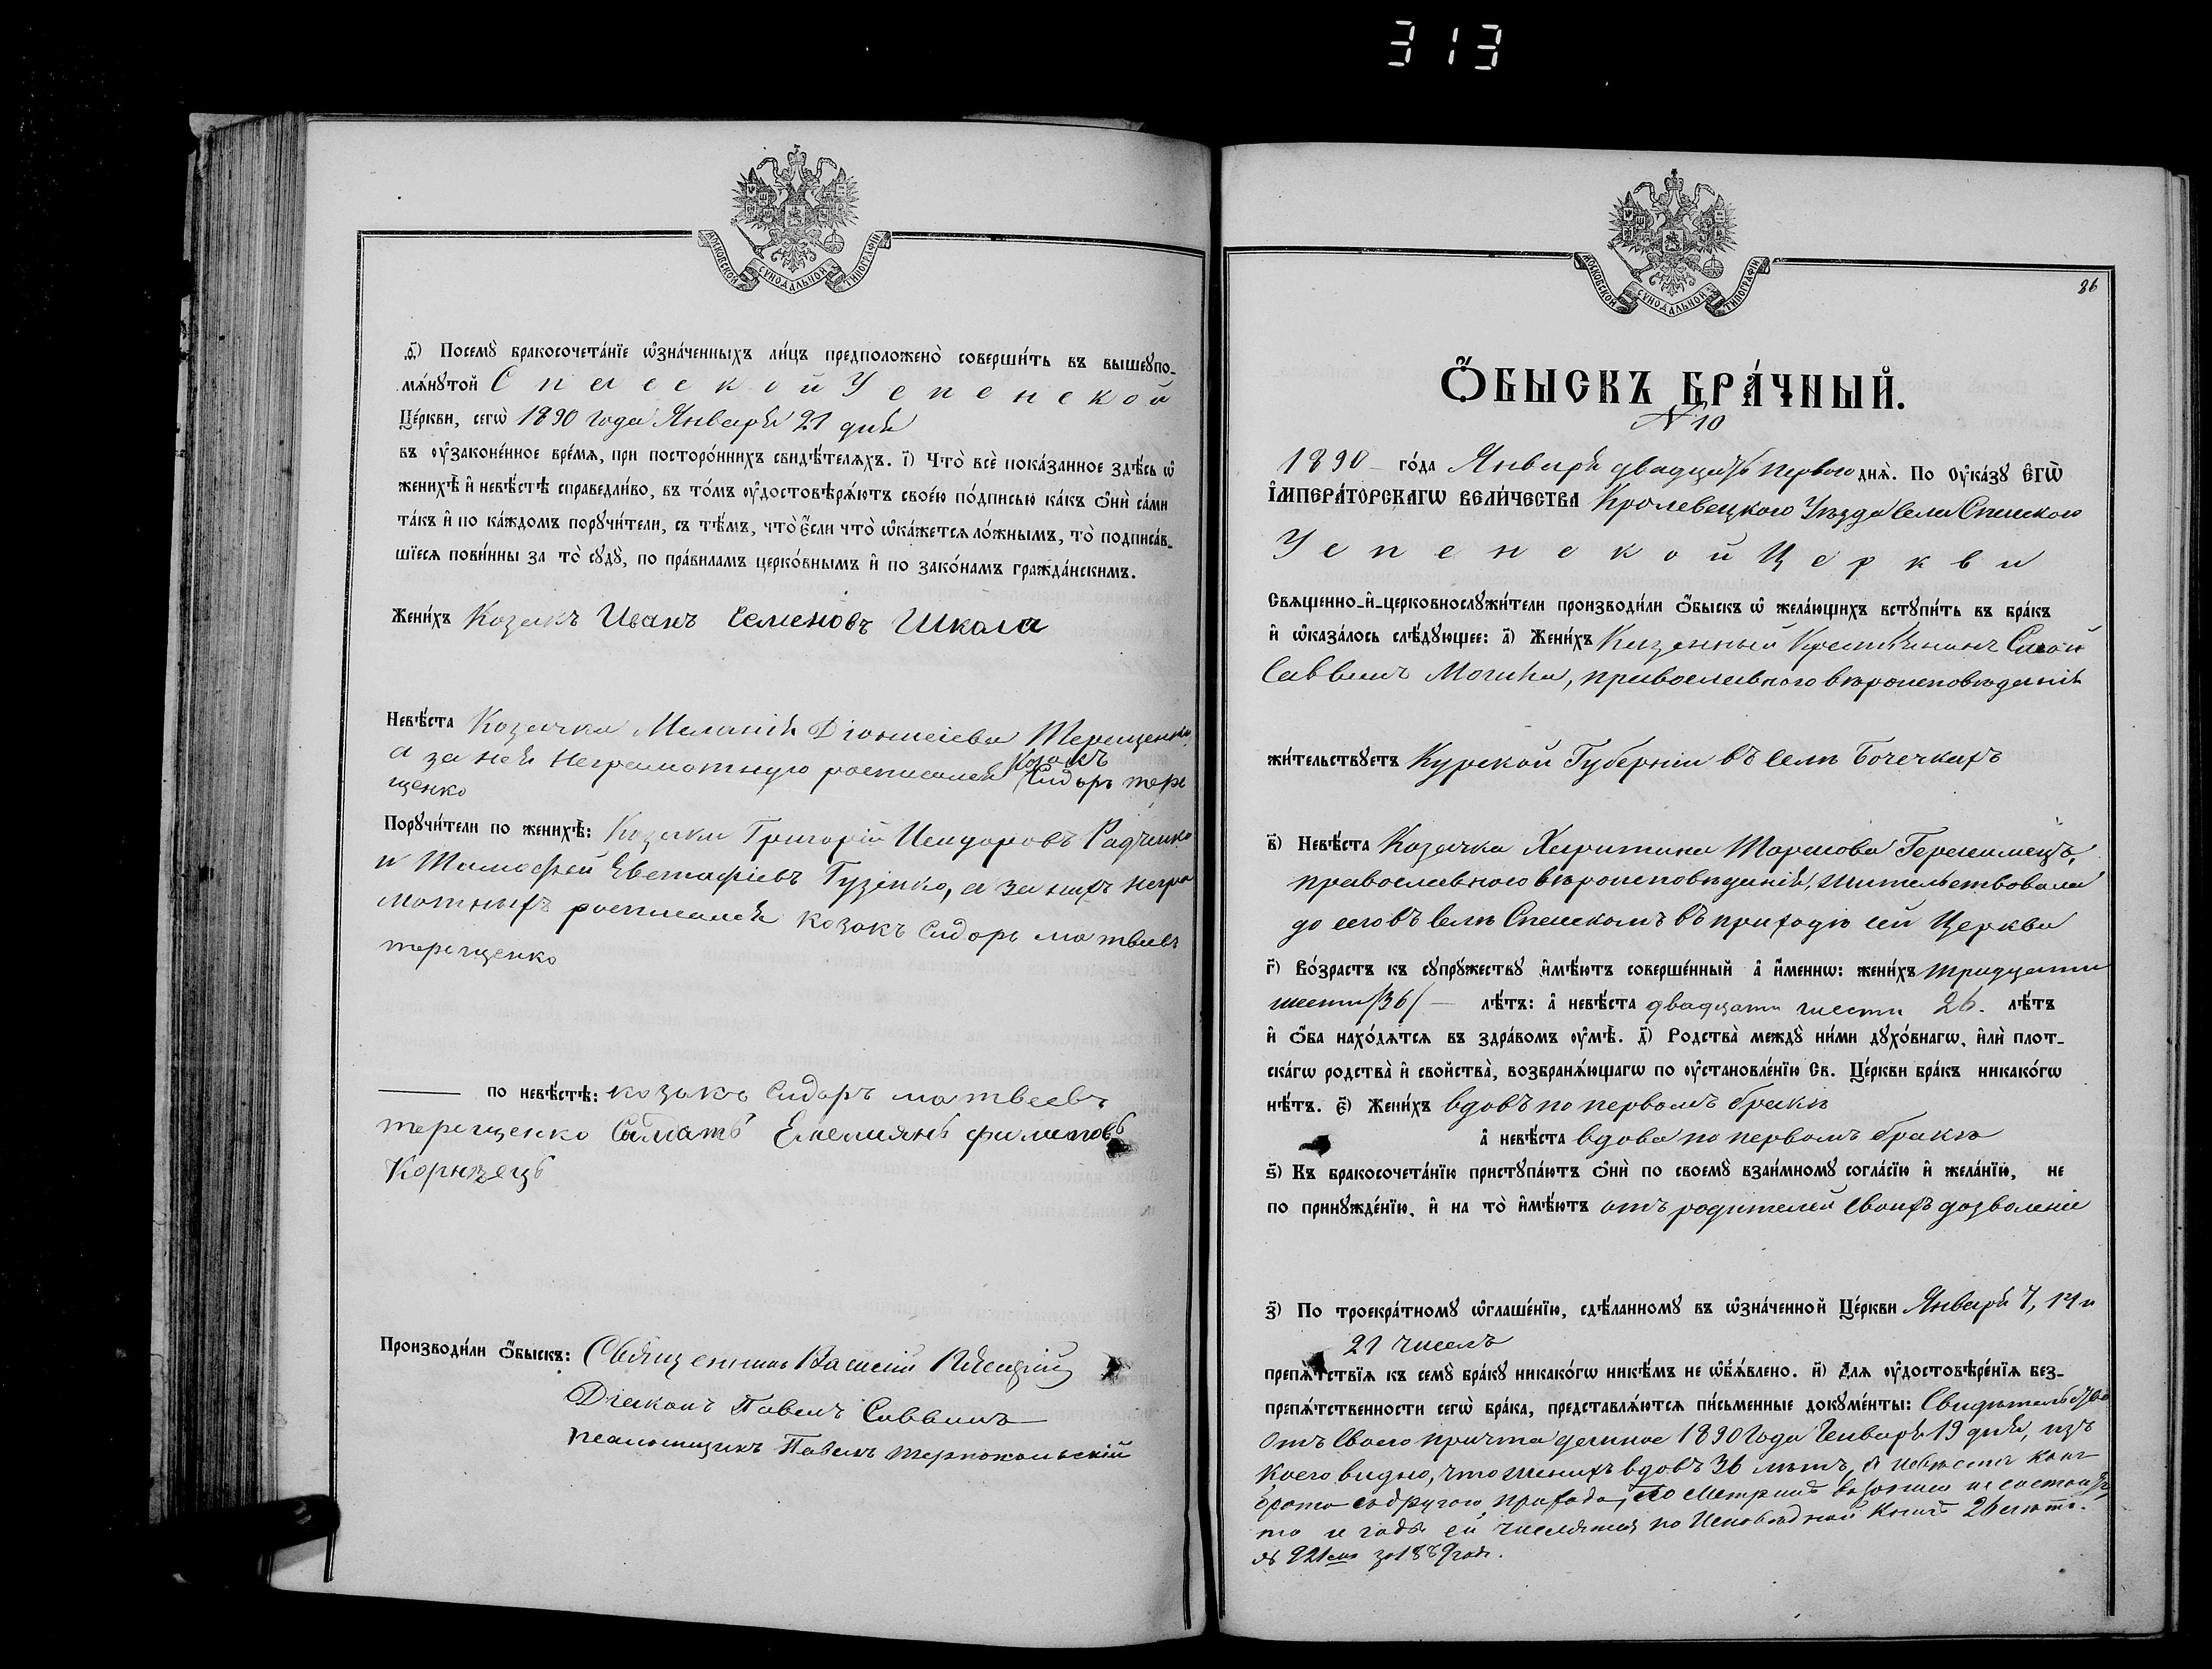 313
МОСКОВСКОЙ СѴНОДАЛЬНОЙ ТИПОГРАФІИ
ѳ҃) Посемꙋ̀ бракосочета́нїе ѡ҆зна́ченныхъ ли́цъ предположено̀ соверши́ть въ вышеꙋпо-
мѧ́нꙋтой Спасской Успенской
Це́ркви, сегѡ̀ 1890 года Января 21 дня
въ ᲂу҆законе́нное вре́мѧ, при посторо́ннихъ свидѣ́телѧхъ. і҃) Что̀ всѐ пока́занное здѣ́сь ѡ҆
женихѣ̀ и҆ невѣ́стѣ справедли́во, въ то́мъ ᲂу҆достовѣрѧ́ютъ свое́ю по́дписью ка́къ ѻ҆нѝ са́ми
та́къ и҆ по ка́ждомъ порꙋчи́тели, съ тѣ́мъ, что̀ є҆́сли что̀ ѡ҆ка́жетсѧ ло́жнымъ, то̀ подписа́в-
шїесѧ пови́нны за то̀ сꙋдꙋ̀, по пра́виламъ церко́внымъ и҆ по зако́намъ гражда́нскимъ.
Жени́хъ Козакъ Иванъ Семеновъ Школа
Невѣ́ста Козачка Меланія Діонисіева Терещенко,
а за нея неграмотную росписался Козакъ Сидоръ тере
щенко
Порꙋчи́тели по женихѣ̀: Козаки Григорій Исидоровъ Радченко
и Тимофей Евстафіевъ Гузѣнко, а за нихъ негра
мотныхъ росписался козакъ Сидоръ матвѣевъ
терещенко
по невѣ́стѣ: козакъ Сидоръ матвеевъ
терещенко Салдатъ Емелиянъ филиповъ
Корнѣецъ
Производи́ли ѻ҆́быскъ: Священникъ Василій
Діаконъ Павелъ Саввинъ
псаломщикъ Павелъ Тернопольскій
МОСКОВСКОЙ СѴНОДАЛЬНОЙ ТИПОГРАФІИ
86
Ѻ҆́БЫСКЪ БРА́ЧНЫЙ.
№ 10
1890 го́да Января двадцать перваго днѧ̀. По ᲂу҆ка́зꙋ є҆гѡ̀
і҆мпера́торскагѡ вели́чества Кролевецкаго Уѣзда села Спасскаго
Успенской Церкви
Свѧщенно-и҆-церковнослꙋжи́тели производи́ли ѻ҆́быскъ ѡ҆ жела́ющихъ встꙋпи́ть въ бра́къ
и҆ ѡ҆каза́лось слѣ́дꙋющее: а҃) Жени́хъ Казенный Крестьянинъ
Саввинъ Могила, православного вѣроисповѣданія
жи́тельствꙋетъ Курской Губерніи въ селѣ Бочечкахъ
в҃) Невѣ́ста Козачка Харитина Тарасова Герасимецъ,
православного вѣроисповѣданія, жительствовала
до сего въ селѣ Спасскомъ въ приходѣ сей Церкви
г҃) Во́зрастъ къ сꙋпрꙋ́жествꙋ и҆мѣ́ютъ соверше́нный а҆ и҆́меннѡ: жени́хъ тридцати
шести /36/ — лѣ́тъ: а҆ невѣ́ста двадцати шести 26. лѣ́тъ
и҆ ѻ҆́ба нахо́дѧтсѧ въ здра́вомъ ᲂу҆мѣ̀. д҃) Родства̀ междꙋ̀ ни́ми дꙋхо́внагѡ, и҆лѝ плот-
ска́гѡ родства̀ и҆ свойства̀, возбранѧ́ющагѡ по ᲂу҆становле́нїю Св. Це́ркви бра́къ никако́гѡ
нѣ́тъ. є҃) Жени́хъ вдовъ по первомъ бракѣ
а҆ невѣ́ста вдова по первомъ бракѣ
ѕ҃) Къ бракосочета́нїю пристꙋпа́ютъ ѻ҆нѝ по своемꙋ̀ взаи́мномꙋ согла́сїю и҆ жела́нїю, не
по принꙋжде́нїю, и҆ на то̀ и҆мѣ́ютъ отъ родителей своихъ дозволеніе
з҃) По троекра́тномꙋ ѡ҆глаше́нїю, сдѣ́ланномꙋ въ ѡ҆зна́ченной Це́ркви Января 7, 14 и
21 чиселъ
препѧ́тствїѧ къ семꙋ̀ бра́кꙋ никако́гѡ никѣ́мъ не ѡ҆б̾ѧ́влено. и҃) Длѧ ᲂу҆достовѣре́нїѧ без-
препѧ́тственности сегѡ̀ бра́ка, представлѧ́ютсѧ пи́сьменные докꙋме́нты: Свидѣтельство
отъ своего причта данное 1890 года Генваря 19 дня, изъ
коего видно, что женихъ вдовъ 36 лѣтъ, а невѣста
съ другого прихода, по Метрикѣ не состоитъ,
то и года ей числятся по Исповѣдной Книгѣ 26 лѣтъ.
№ 921 за 1889 годъ.